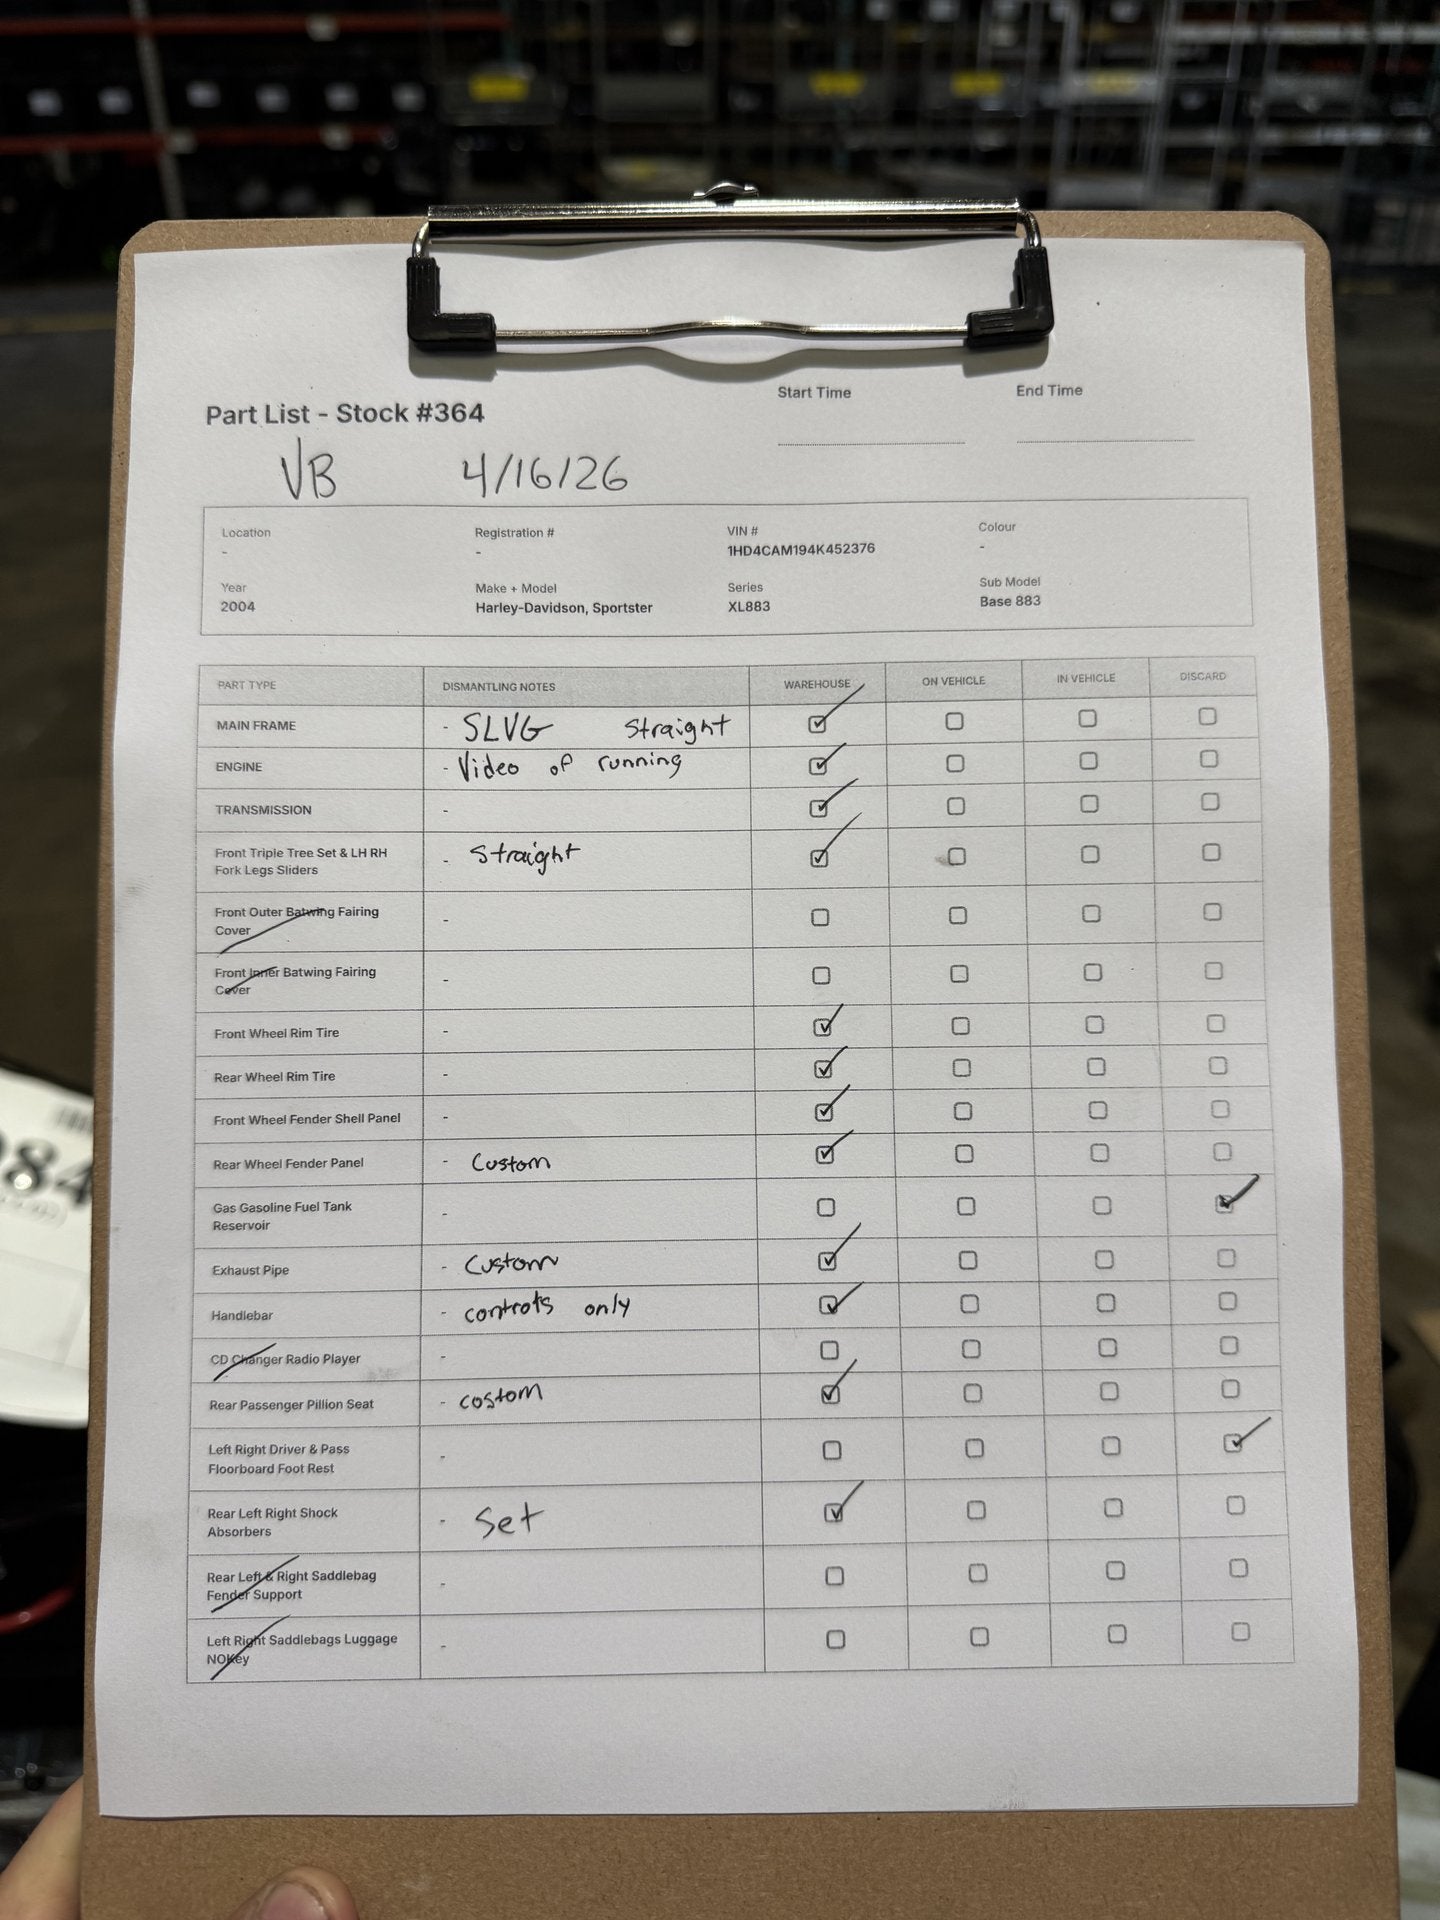 Start Time End Time
Part List - Stock #364
VB 4/16/26
Location Registration # VIN # Colour
- - 1HD4CAM194K452376 -
Year Make + Model Series Sub Model
2004 Harley-Davidson, Sportster XL883 Base 883
PART TYPE DISMANTLING NOTES WAREHOUSE ON VEHICLE IN VEHICLE DISCARD
MAIN FRAME - SLVG Straight
ENGINE - Video of running
TRANSMISSION -
Front Triple Tree Set & LH RH
Fork Legs Sliders - Straight
Front Outer Batwing Fairing
Cover -
Front Inner Batwing Fairing
Cover -
Front Wheel Rim Tire -
Rear Wheel Rim Tire -
Front Wheel Fender Shell Panel -
Rear Wheel Fender Panel - Custom
Gas Gasoline Fuel Tank
Reservoir -
Exhaust Pipe - Custom
Handlebar - controls only
CD Changer Radio Player -
Rear Passenger Pillion Seat - costom
Left Right Driver & Pass
Floorboard Foot Rest -
Rear Left Right Shock
Absorbers - Set
Rear Left & Right Saddlebag
Fender Support -
Left Right Saddlebags Luggage
NOKey -
84